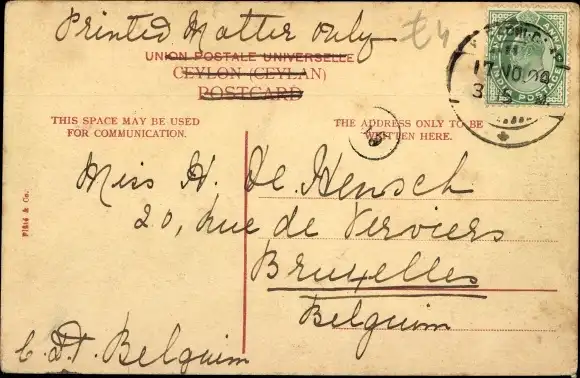 Printed Matter only
£4
UNION POSTALE UNIVERSELLE
CEYLON (CEYLAN)
POSTCARD
THIS SPACE MAY BE USED
FOR COMMUNICATION.
THE ADDRESS ONLY TO BE
WRITTEN HERE.
Miss H. De Hensch
20, rue de Verviers
Bruxelles
Belguim
C.D.T. Belguim
Plâté & Co.
17 NO 06
POSTAGE